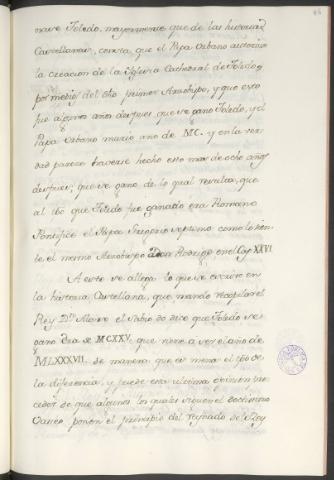 nave Toledo, mayormente que de las historias
Castellanas, consta que el Papa Urbano autorizo
la creacion de la Yglesia Cathedral de Toledo, y
por medio del dho primer Arzobispo, y que esto
fue algunos años despues que se gano Toledo, y el
Papa Urbano murio año de MC. y en la ver
dad parece haverse hecho esto mas de ocho años
despues, que se gano, de lo qual resulta, que
al tpo que Toledo fue ganado era Romano
Pontifice el Papa Gregorio septimo como lo
te el mismo Arzobispo Don Rodrigo en el Cap. XXVI.
A esto se allega lo que se escrivio en
la historia Castellana, que mando recopilar el
Rey Dn Alonso el Sabio do dice que Toledo se
gano Era de MCXXV. que viene a ser el año de
MLXXXVII. de manera que es menor el tpo de
la diferencia, y puede esta ultima opinion pro
ceder de que algunos los quales siguen el doctissimo
Vaseo, ponen el principio del reynado de el Rey